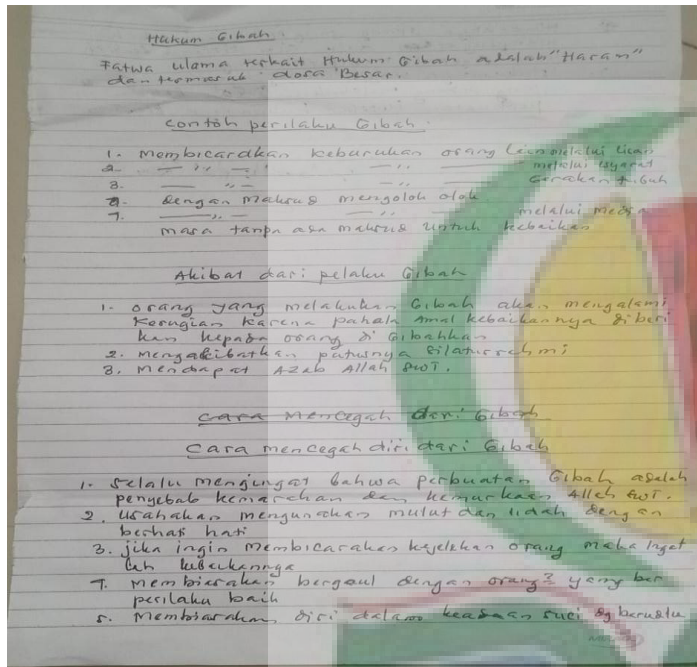 Hukum Gibah
Fatwa ulama terkait Hukum Gibah adalah "Haram"
dan termasuk dosa Besar.
contoh perilaku Gibah
1. Membicarakan keburukan orang Lain melalui lisan
2. — ,, — — ,, — melalui isyarat
3. — ,, — — ,, — Gerakan tubuh
dengan maksud mengolok olok
— ,, — — ,, — melalui media
masa tanpa ada maksud untuk kebaikan
Akibat dari pelaku Gibah
1. orang yang melakukan Gibah akan mengalami
kerugian karena pahala amal kebaikannya diberi
kan kepada orang di Gibahkan
2. mengakibatkan putusnya silaturrahmi
3. Mendapat Azab Allah swt.
Cara Mencegah dari Gibah
Cara mencegah diri dari Gibah
1. Selalu mengingat bahwa perbuatan Gibah adalah
penyebab kemarahan dan kemurkaan Allah swt.
2. Usahakan mengunakan mulut dan lidah dengan
berhati hati
3. jika ingin membicarakan kejelekan orang maka Inget
lah kebaikannya
Membiasakan bergaul dengan orang2 yang ber
perilaku baik
5. Membiasakan diri dalam keadaan suci dg berudlu